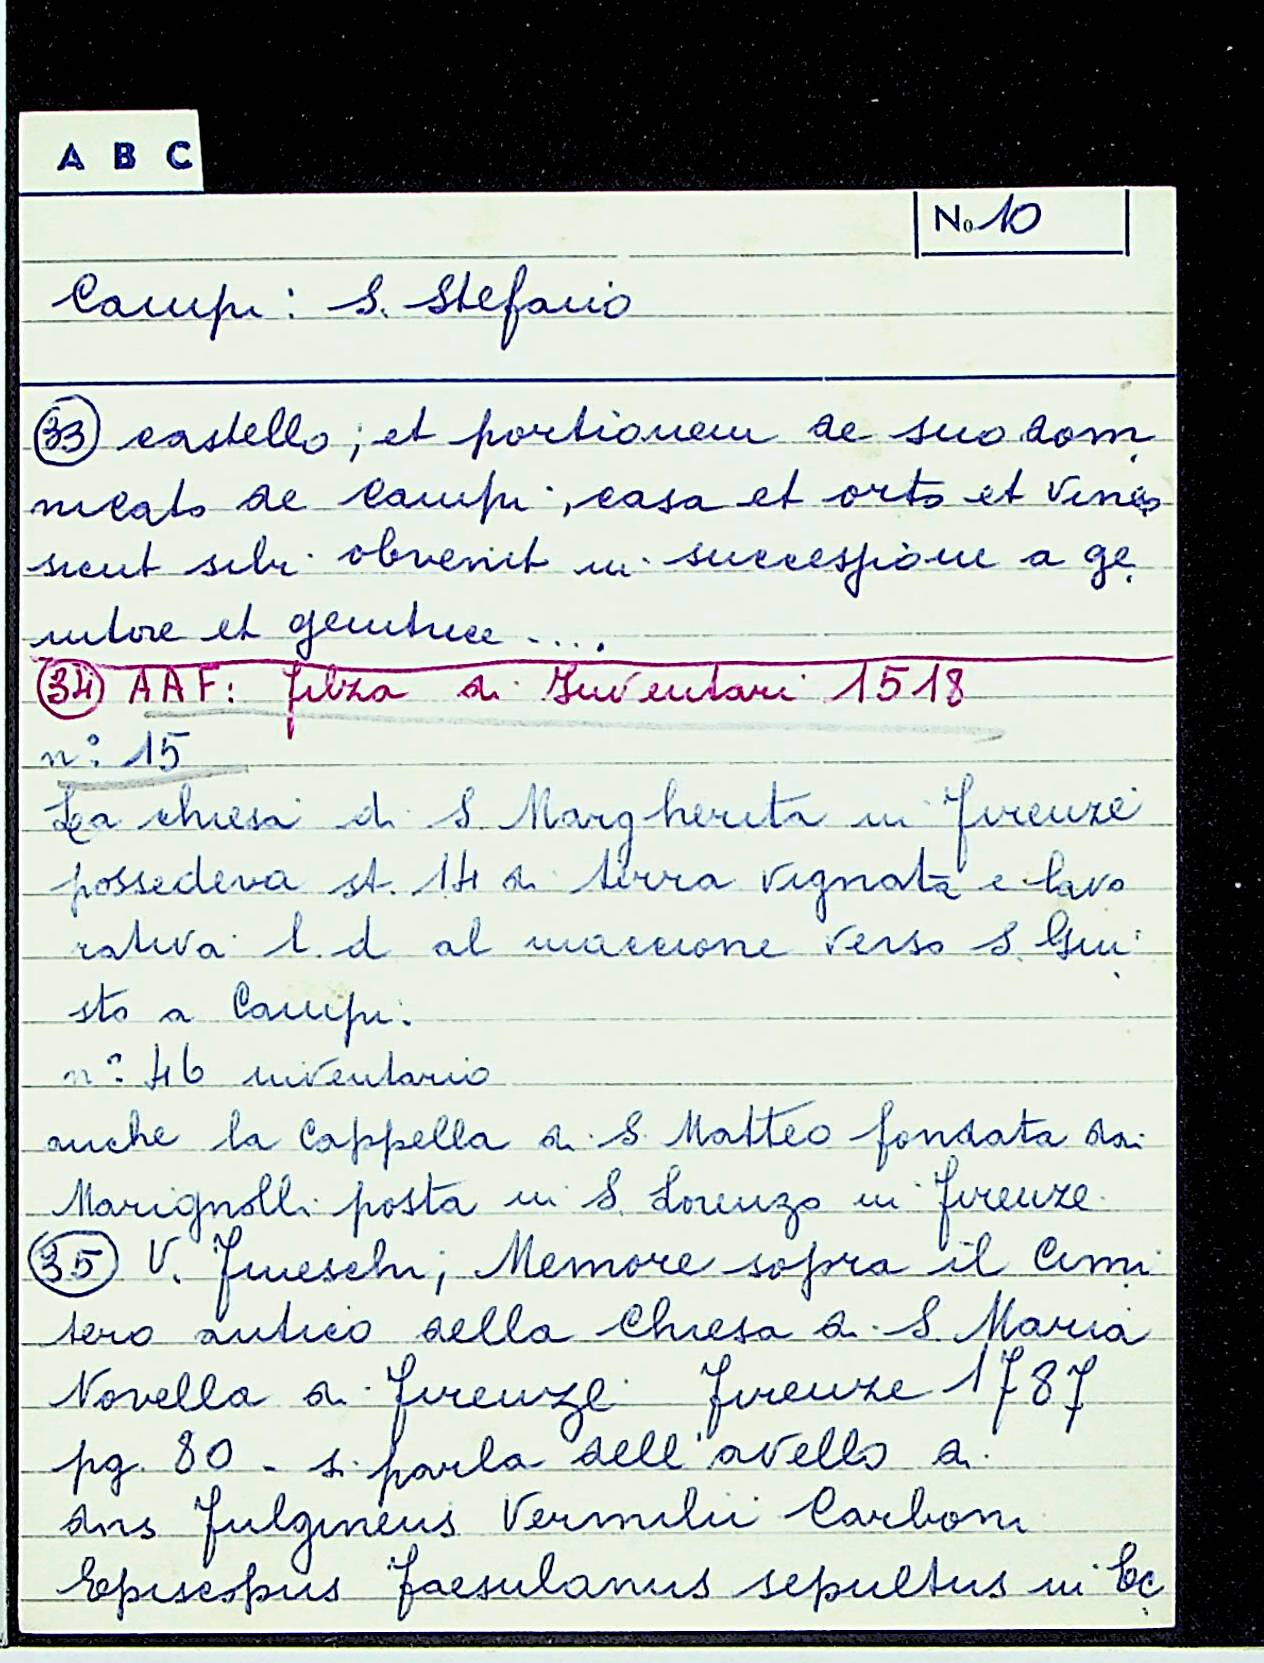 A B C
No 10
Campi: S. Stefano
33 castello, et portionem de suo dom
nicato de Campi, casa et orto et vinea
sicut sibi obvenit in successione a ge
nitore et genitrice ....
34 AAF: filza di Inventari 1518
n: 15
La chiesa di S Margherita in Firenze
possedeva st. 14 di terra vignata e lavo
rativa l. d al maccione verso S. Giu
sto a Campi.
n: 46 inventario
anche la Cappella di S. Matteo fondata dai
Marignolli posta in S. Lorenzo in Firenze
35 V. Fineschi, Memorie sopra il Cimi
tero antico della Chiesa di S. Maria
Novella di Firenze Firenze 1787
pg. 80 - si parla dell'avello di
dns Fulgineus Vermilii Carboni
Episcopus Faesulanus sepultus in Ec